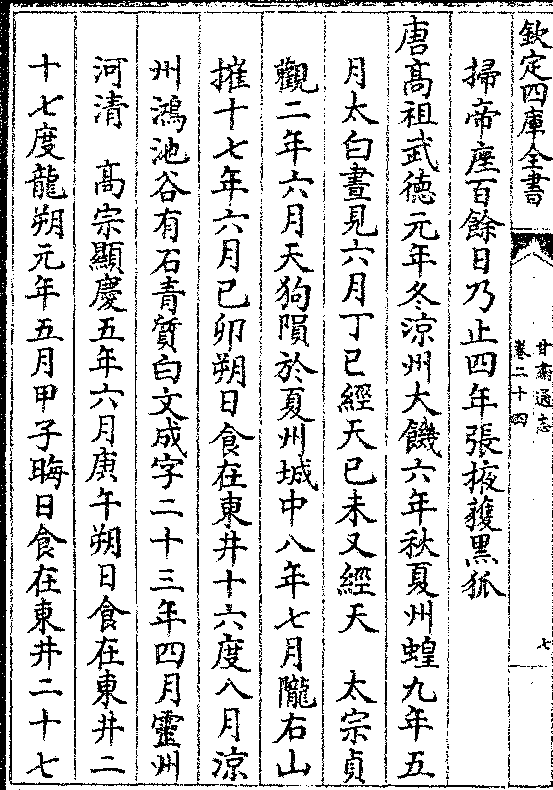 欽定四庫全書
甘肅通志
卷二十四
七
掃帝座百餘日乃止四年張掖獲黑狐
唐髙祖武德元年冬涼州大饑六年秋夏州蝗九年五
月太白晝見六月丁巳經天已未又經天　太宗貞
觀二年六月天狗隕於夏州城中八年七月隴右山
摧十七年六月己卯朔日食在東井十六度八月涼
州鴻池谷有石青質白文成字二十三年四月靈州
河清　髙宗顯慶五年六月庚午朔日食在東井二
十七度龍朔元年五月甲子晦日食在東井二十七